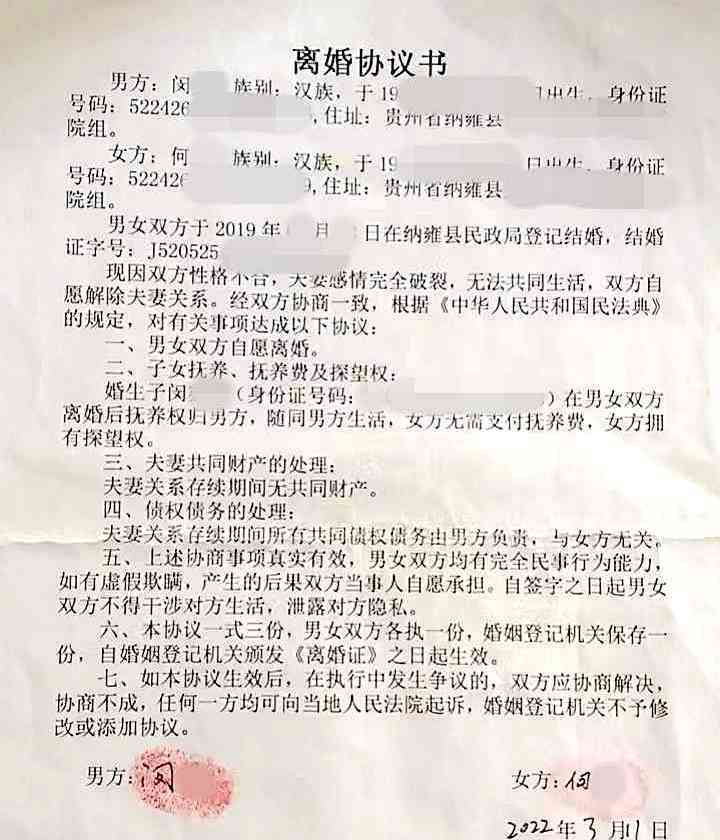 离婚协议书
男方：闵 族别：汉族，于19 日出生，身份证
号码：522426 ，住址：贵州省纳雍县
院组。
女方：何 族别：汉族，于19 日出生，身份证
号码：522426 9，住址：贵州省纳雍县
院组。
男女双方于2019年 月 日在纳雍县民政局登记结婚，结婚
证字号：J520525
现因双方性格不合，夫妻感情完全破裂，无法共同生活，双方自
愿解除夫妻关系。经双方协商一致，根据《中华人民共和国民法典》
的规定，对有关事项达成以下协议：
一、男女双方自愿离婚。
二、子女抚养、抚养费及探望权：
婚生子闵 （身份证号码： ）在男女双方
离婚后抚养权归男方，随同男方生活，女方无需支付抚养费，女方拥
有探望权。
三、夫妻共同财产的处理：
夫妻关系存续期间无共同财产。
四、债权债务的处理：
夫妻关系存续期间所有共同债权债务由男方负责，与女方无关。
五、上述协商事项真实有效，男女双方均有完全民事行为能力，
如有虚假欺瞒，产生的后果双方当事人自愿承担。自签字之日起男女
双方不得干涉对方生活，泄露对方隐私。
六、本协议一式三份，男女双方各执一份，婚姻登记机关保存一
份，自婚姻登记机关颁发《离婚证》之日起生效。
七、如本协议生效后，在执行中发生争议的，双方应协商解决，
协商不成，任何一方均可向当地人民法院起诉，婚姻登记机关不予修
改或添加协议。
男方：闵 女方：何
2022年3月11日